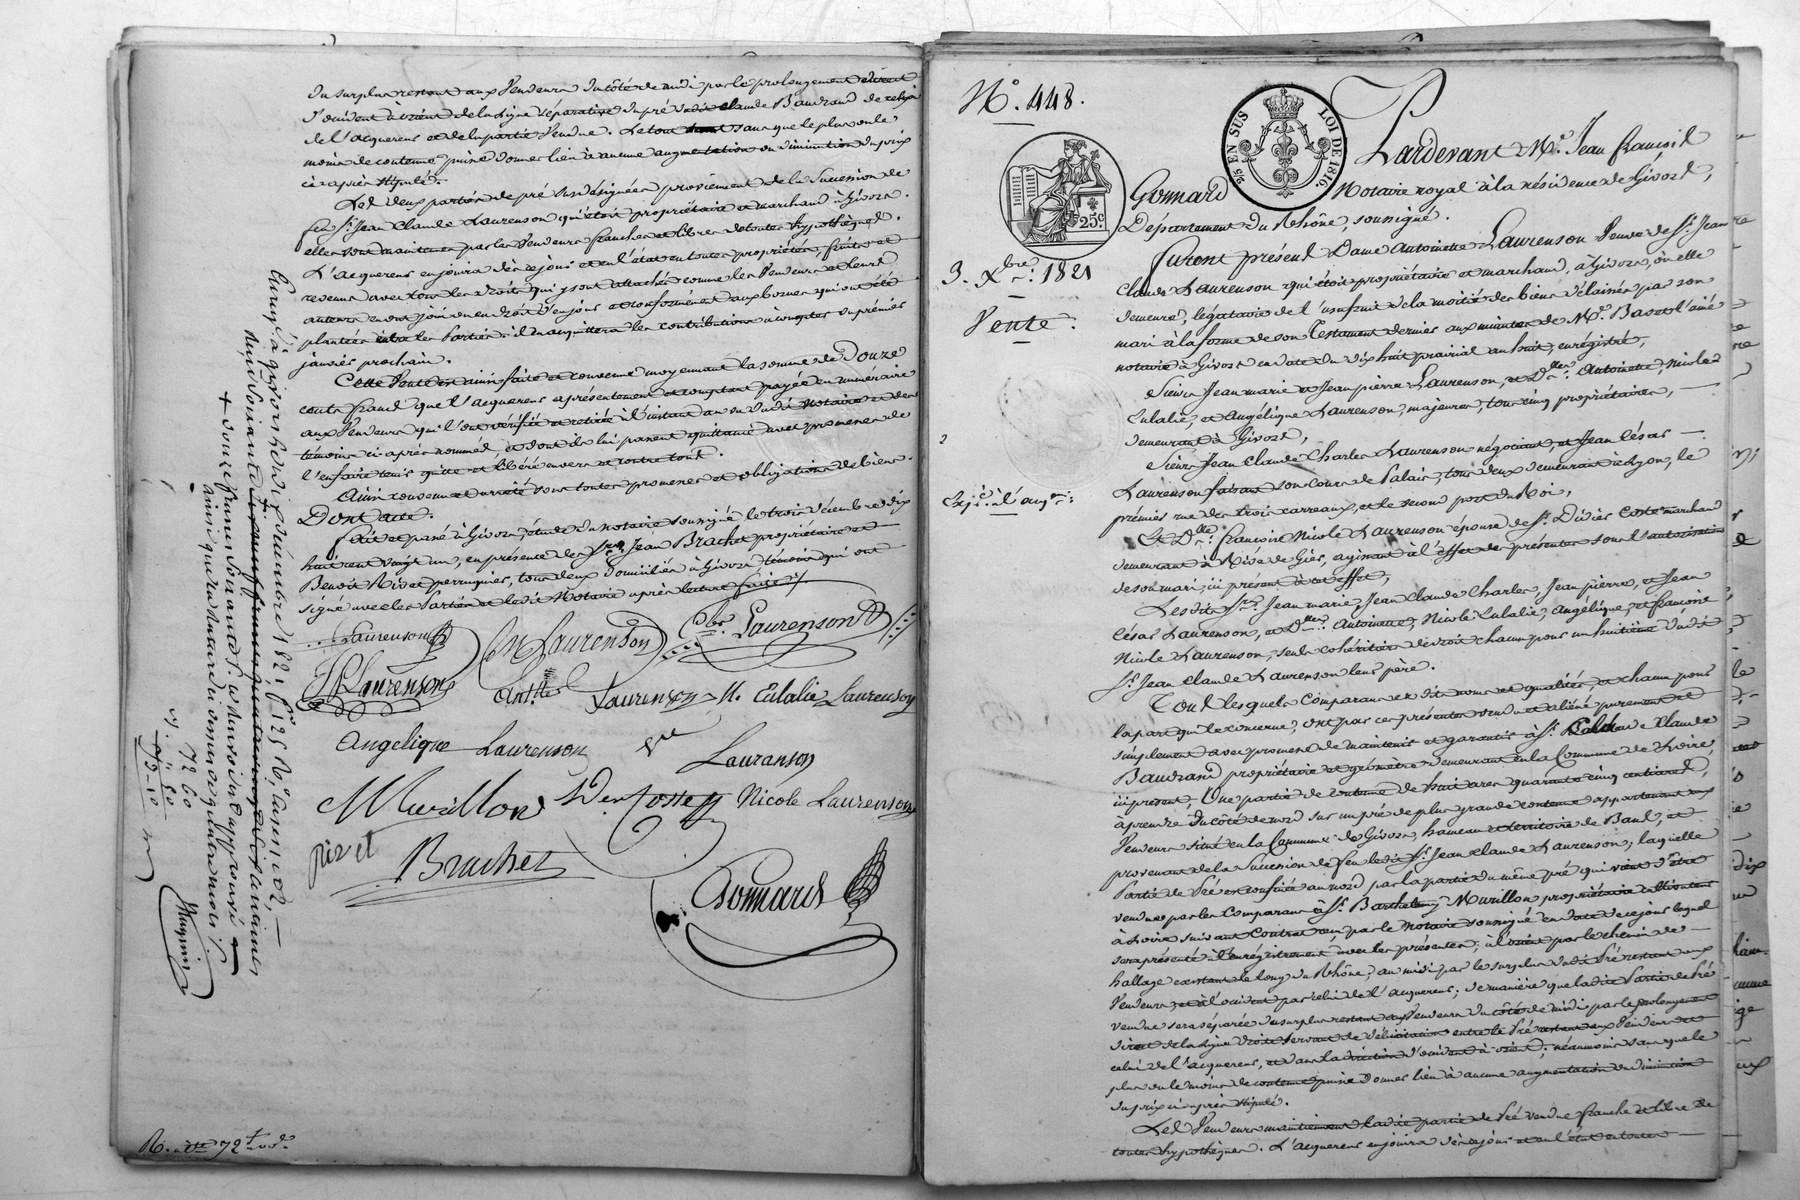 du surplus restant aux Vendeurs du côté de midi par le prolongement direct
d'occident à orient de la ligne séparative du pré dudit Claude Baudrand de celui
de l'acquereur et de la partie Vendue. Le tout sans que le plus ou le
moins de contenue puisse donner lieu à aucune augmentation ou diminution du prix
ci-après stipulé.
Les deux parties de pré susdésignées proviennent de la succession de
feu Sr. Jean Claude Laurenson qui étoit propriétaire et marchand à Givors.
elles sont maintenues par les Vendeurs franches et libres de toutes hypothèques.
L'acquereur en jouira dès ce jour et en l'état en toutes propriétés, fruits et
revenus avec tous les droits qui y sont attachés comme les Vendeurs et leurs
auteurs en ont joui ou eu droit d'en jouir et conformément aux bornes qui ont été
plantées entre les Parties. il en acquittera les contributions à compter du premier
janvier prochain.
Cette Vente est ainsi faite et convenue moyennant la somme de Douze
cents francs que l'acquereur a présentement et comptant payée en numéraire
aux Vendeurs qui l'ont vérifiée et retirée à l'instant au vu dudit Notaire et des
témoins ci-après nommés, et dont ils lui passent quittance avec promesse de
l'en faire tenir quitte et libéré envers et contre tous.
Ainsi convenu et arrêté sous toutes promesses et obligations de biens.
Dont acte.
Fait et passé à Givors, étude du notaire soussigné le trois décembre dix
huit cent vingt un, en présence des Srs. Jean Brachet propriétaire et
Benoit Rivet perruquier, tous deux domiciliés à Givors, témoins qui ont
signé avec les Parties et ledit Notaire après lecture faite ./.
Laurenson
JM Laurenson
Ces. Laurenson
JPLaurenson
Antte Laurenson
N. Eulalie Laurenson
Angelique Laurenson
Lauranson
Murillon
Nicole Laurenson
rivet
Brachet
Gonnard
Enreg. à givors le dix décembre 1821 fo. 125
+ douze francs soixante
72 60
R. 72
No. 448.
25 EN SUS
LOI DE 1816.
25c.
3. Xbre. 1821
Vente.
Pardevant Me. Jean François
Gonnard Notaire royal à la résidence de Givors,
Département du Rhône, soussigné.
Furent présents Dame Antoinette Laurenson Veuve de Sr. Jean
Claude Laurenson qui étoit propriétaire et marchand, à Givors, où elle
demeure, légataire de l'usufruit de la moitié des biens délaissés par son
mari à la forme de son Testament dernier aux minutes de Me. Basset l'ainé
notaire à Givors en date du dix huit prairial an huit, enregistré,
Sieurs Jean marie et Jean pierre Laurenson, et Dlles. Antoinette, Nicole
Eulalie, et Angélique Laurenson, majeures, tous cinq propriétaires,
demeurant à Givors,
Sieurs Jean Claude Charles Laurenson négociant, et Jean César
Laurenson faisant son cours de Palais, tous deux demeurant à Lyon, le
premier rue des trois carreaux, et le second port du Roi,
Et Dlle. Françoise Nicole Laurenson épouse de Sr. Didier Coste marchand
demeurant à Rive de Gier, agissant à l'effet des présentes sous l'autorisation
de son mari, ici présent à cet effet,
Lesdits Srs. Jean marie, Jean Claude Charles, Jean pierre, et Jean
César Laurenson, et Dlles. Antoinette, Nicole Eulalie, Angélique, et Françoise
Nicole Laurenson, seuls cohéritiers de droit chacun pour un huitième dudit
Sr. Jean Claude Laurenson leur père.
Tous lesquels Comparans es dits noms et qualités, et chacun pour
la part qui le concerne, ont par ces présentes vendu et aliéné purement et
simplement avec promesse de maintenir et garantir à Sr. Claude
Baudrand propriétaire et géomètre demeurant en la Commune de Loire,
ici présent, Une partie de contenue de huit ares quarante cinq centiares,
à prendre du côté de nord sur un pré de plus grande contenue appartenant aux
Vendeurs situé en la Commune de Givors, hameau et territoire de Bans, et
provenant de la succession de feu ledit Sr. Jean Claude Laurenson, laquelle
Partie de Pré est confinée au nord par la partie du même pré qui vient d'être
vendue par les Comparans à Sr. Barthelemy Murillon propriétaire
à Loire suivant Contrat reçu par le Notaire soussigné en date de ce jour lequel
sera présenté à l'enregistrement avec les présentes; à l'orient par le chemin de
hallage existant le long du Rhône; au midi par le surplus dudit Pré restant aux
Vendeurs, et à l'occident par celui de l'acquereur; de manière que ladite Partie de Pré
vendue sera séparée du surplus restant aux Vendeurs du côté de midi par le prolongement
direct de la ligne droite servant de délimitation entre le Pré restant aux Vendeurs et
celui de l'acquereur, et dans la direction d'occident à orient; néanmoins sans que le
plus ou le moins de contenue puisse donner lieu à aucune augmentation ou diminution
du prix ci-après stipulé.
Les Vendeurs maintiennent ladite partie de Pré vendue franche et libre de
toutes hypothèques. L'acquereur en jouira dès ce jour et en l'état en toutes